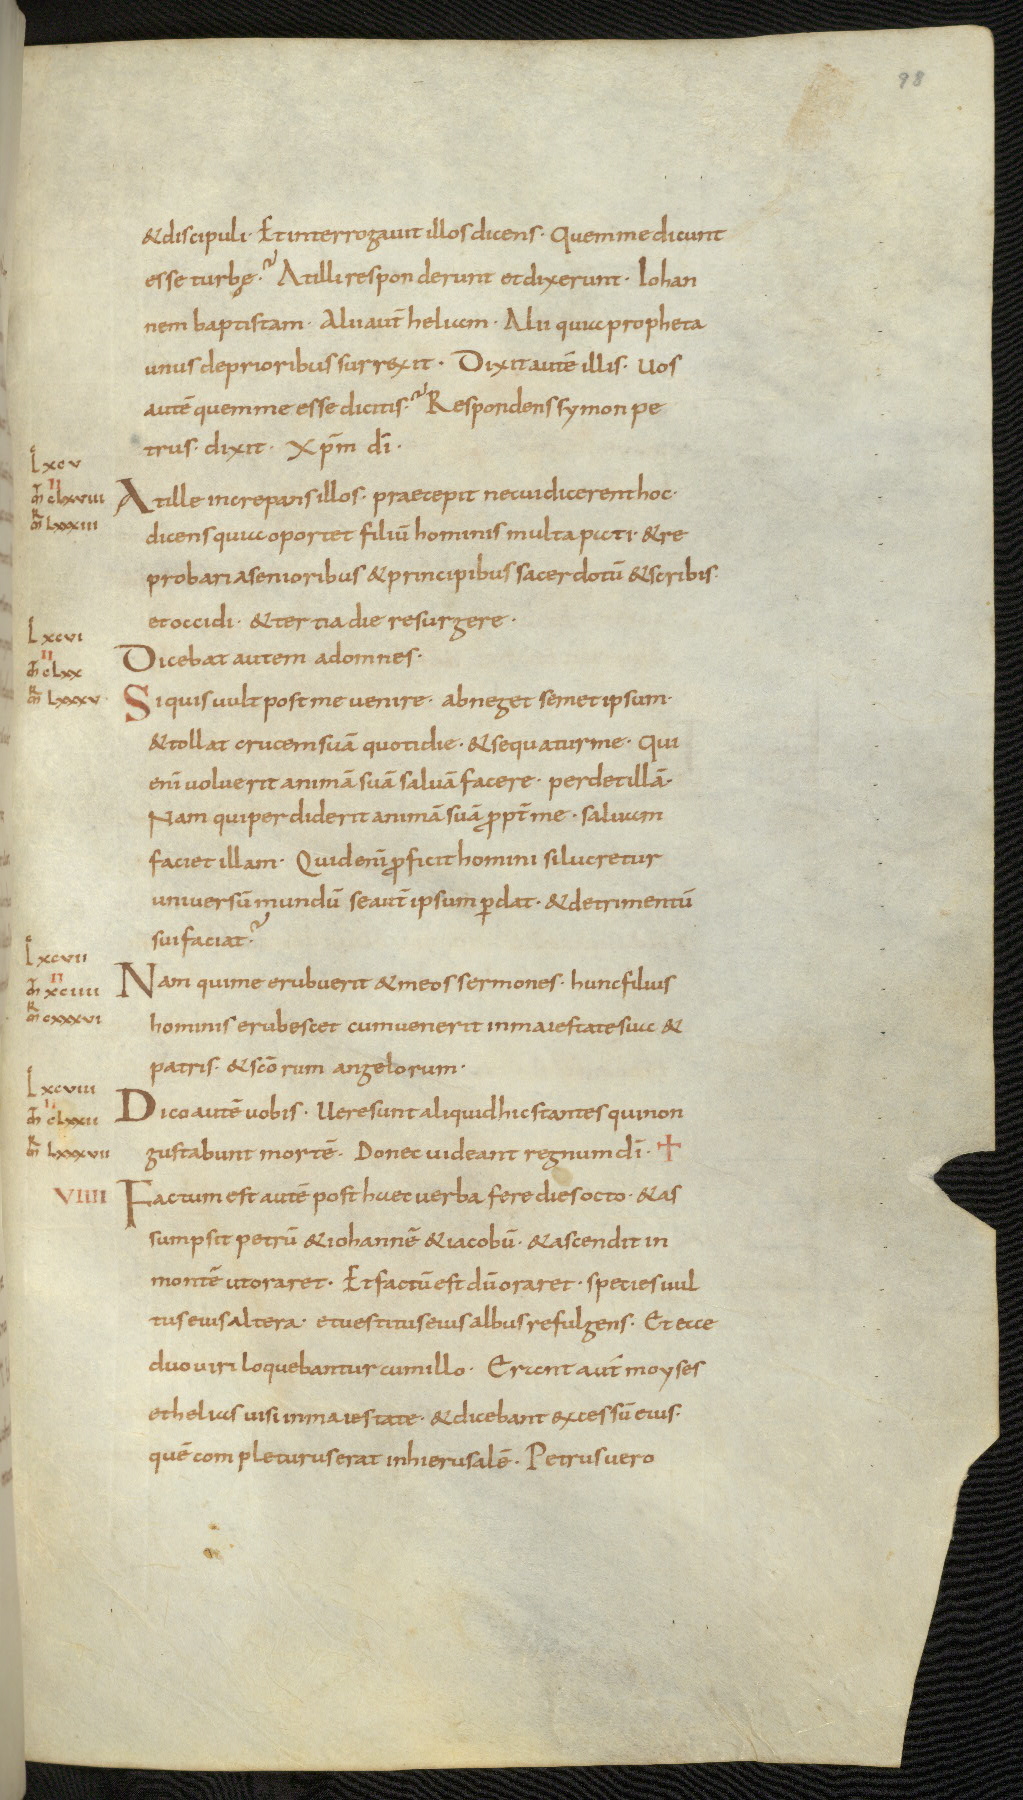 98
&discipuli· Et interrogavit illos dicens· Quem me dicunt
esse turbę·? At illi responderunt et dixerunt· Iohan
nem baptistam· Alii aut̄ heliam· Alii quia propheta
unus de prioribus surrexit· Dixit autē illis· Uos
autē quem me esse dicitis·? Respondens symon pe
trus· dixit· Xp̄m dī·
L xcv
m̄ clxviii
II
m̄r lxxxiii
At ille increpans illos· praecepit ne cui dicerent hoc·
dicens quia oportet filiū hominis multa pati· & re
probari a senioribus & principibus sacerdotū & scribis·
et occidi· & tertia die resurgere·
L xcvi
II
m̄ clxx
m̄r lxxxv·
Dicebat autem ad omnes·
Si quis vult post me venire· abneget semetipsum·
& tollat crucem suā quotidie· & sequatur me· Qui
enī voluerit animā suā salvā facere· perdet illā·
Nam qui perdiderit animā suā ꝓpt̄ me· saluam
faciet illam· Quid enī ꝓficit homini si lucretur
universū mundū se aut̄ ipsum ꝑdat· & detrimentū
sui faciat·?
L xcvii
II
m̄ xciiii
m̄r cxxxvi
Nam qui me erubuerit & meos sermones· hunc filius
hominis erubescet cum venerit in maiestate sua &
patris· & scōrum angelorum·
L xcviii
II
m̄ clxxii
m̄r lxxxvii
Dico autē uobis· Uere sunt aliqui dhic stantes qui non
gustabunt mortē· Donec uideant regnum dī· +
VIIII Factum est autē post haec verba fere dies octo· & as
sumpsit petrū & iohannē & iacobū· & ascendit in
montē ut oraret· Et factū est dū oraret· species uul
tus eius altera· et uestitus eius albus refulgens· Et ecce
duo uiri loquebantur cum illo· Erant aut̄ moyses
et helias uisi in maiestate· & dicebant excessū eius·
quē completurus erat in hierusalē· Petrus uero